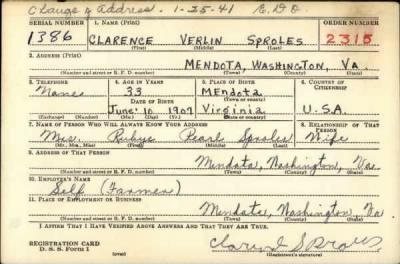 Change of Address. 1-25-41 E.D.O
SERIAL NUMBER 1. NAME (Print) ORDER NUMBER
1386 CLARENCE VERLIN SPROLES 2315
(First) (Middle) (Last)
2. ADDRESS (Print)
MENDOTA, WASHINGTON, VA.
(Number and street or R. F. D. number) (Town) (County) (State)
3. TELEPHONE 4. AGE IN YEARS 5. PLACE OF BIRTH 6. COUNTRY OF CITIZENSHIP
None 33 MEndota
DATE OF BIRTH (Town or county)
June 10 1907 Virginia U.S.A.
(Exchange) (No.) (Mo.) (Day) (Yr.) (State or country)
7. NAME OF PERSON WHO WILL ALWAYS KNOW YOUR ADDRESS 8. RELATIONSHIP OF THAT PERSON
Mrs. Rubye Pearl Sproles Wife
(Mr., Mrs., Miss) (First) (Middle) (Last)
9. ADDRESS OF THAT PERSON
Mendota, Washington, Va.
(Number and street or R. F. D. number) (Town) (County) (State)
10. EMPLOYER'S NAME
Self (Farmer)
11. PLACE OF EMPLOYMENT OR BUSINESS
Mendota, Washington, Va.
(Number and street or R. F. D. number) (Town) (County) (State)
I AFFIRM THAT I HAVE VERIFIED ABOVE ANSWERS AND THAT THEY ARE TRUE.
REGISTRATION CARD
D. S. S. Form 1 (over) Clarence Sproles
(Registrant's signature)